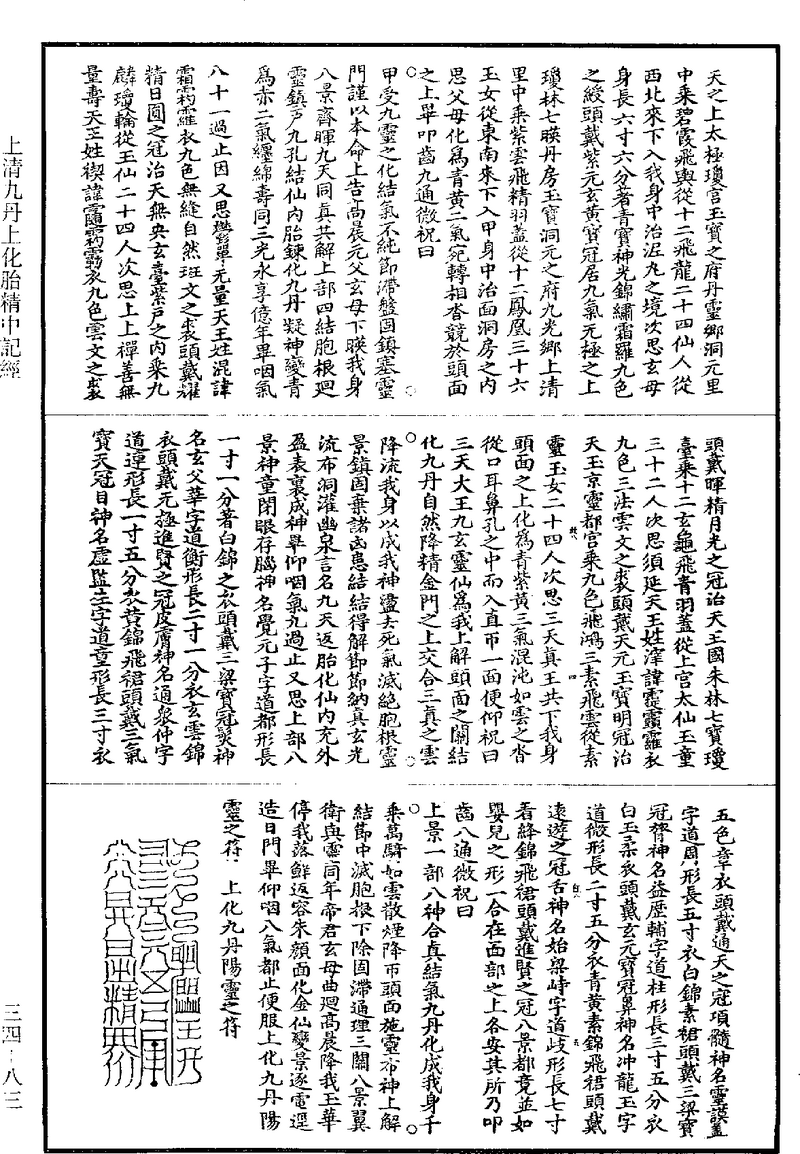 天之上太極瓊宮玉寶之府丹靈鄉洞元里
中乘碧霞飛輿從十二飛龍二十四仙人從
西北來下入我身中治泥丸之境次思玄母
身長六寸六分著青寶神光錦繡霜羅九色
之綬頭戴紫元玄黃寶冠居九氣元極之上
瓊林七暎丹房玉寶洞元之府九光鄉上清
里中乘紫雲飛精羽蓋從十二鳳凰三十六
玉女從東南來下入甲身中治面洞房之內
思父母化爲青黃二氣宛轉相沓競於頭面
之上畢叩齒九通微祝曰
甲受九靈之化結氣不純節滯盤固鎮塞靈
門謹以本命上告高晨元父玄母下暎我身
八景齊暉九天同真共解上部四結胞根迴
靈鎮戶九孔結仙內胎鍊化九丹凝神變青
爲赤二氣纏綿壽同三光永享億年畢咽氣
八十一過止因又思鬱單无量天王姓混諱
霜羅衣九色無縫自然斑文之裘頭戴耀
精日圓之冠治天無央玄臺紫戶之內乘九
麟瓊輪從玉仙二十四人次思上上禪善無
量壽天王姓禊諱衣九色雲文之裘
頭戴暉精月光之冠治天王國朱林七寶瓊
臺乘十二玄龜飛青羽蓋從上宮太仙玉童
三十二人次思須延天王姓滓諱羅衣
九色三法雲文之裘頭戴天元玉寶明冠治
天王京靈都宮乘九色飛鴻三素飛雲從素
靈玉女二十四人次思三天真王共下我身
頭面之上化爲青紫黃三氣混沌如雲之沓
從口耳鼻孔之中而入直帀一面便仰祝曰
三天大王九玄靈仙爲我上解頭面之關結
化九丹自然降精金門之上交合三真之雲
降流我身以成我神盪去死氣滅絕胞根靈
景鎮固棄諸凶患結結得解節節納真玄光
流布洞灌幽泉言名九天返胎化仙內充外
盈表裏成神畢仰咽氣九過止又思上部八
景神童閉眼存腦神名覺元子字道都形長
一寸一分著白錦之衣頭戴三梁寶冠髮神
名玄父華字道衡形長二寸一分衣玄雲錦
衣頭戴元極進賢之冠皮膚神名通衆仲字
道連形長一寸五分衣黃錦飛裙頭戴三氣
寶天冠目神名虛監生字道童形長三寸衣
五色章衣頭戴通天之冠項髓神名靈謨蓋
字道周形長五寸衣白錦素裙頭戴三梁寶
冠膂神名益歷輔字道柱形長三寸五分衣
白玉柔衣頭戴玄元寶冠鼻神名沖龍玉字
道微形長二寸五分衣青黃素錦飛裙頭戴
遠遊之冠舌神名始梁峙字道歧形長七寸
着絳錦飛裙頭戴進賢之冠八景都竟並如
嬰兒之形一合在面部之上各安其所乃叩
齒八通微祝曰
上景一部八神合真結氣九丹化成我身千
乘萬騎如雲散煙降帀頭面施靈布神上解
結節中滅胞根下除固滯通理三關八景翼
衛與靈同年帝君玄母曲廻高晨降我玉華
停我落鮮返容朱顏面化金仙變景逐電逕
造日門畢仰咽八氣都止便服上化九丹陽
靈之符　上化九丹陽靈之符
上清九丹上化胎精中記經
三四·八三